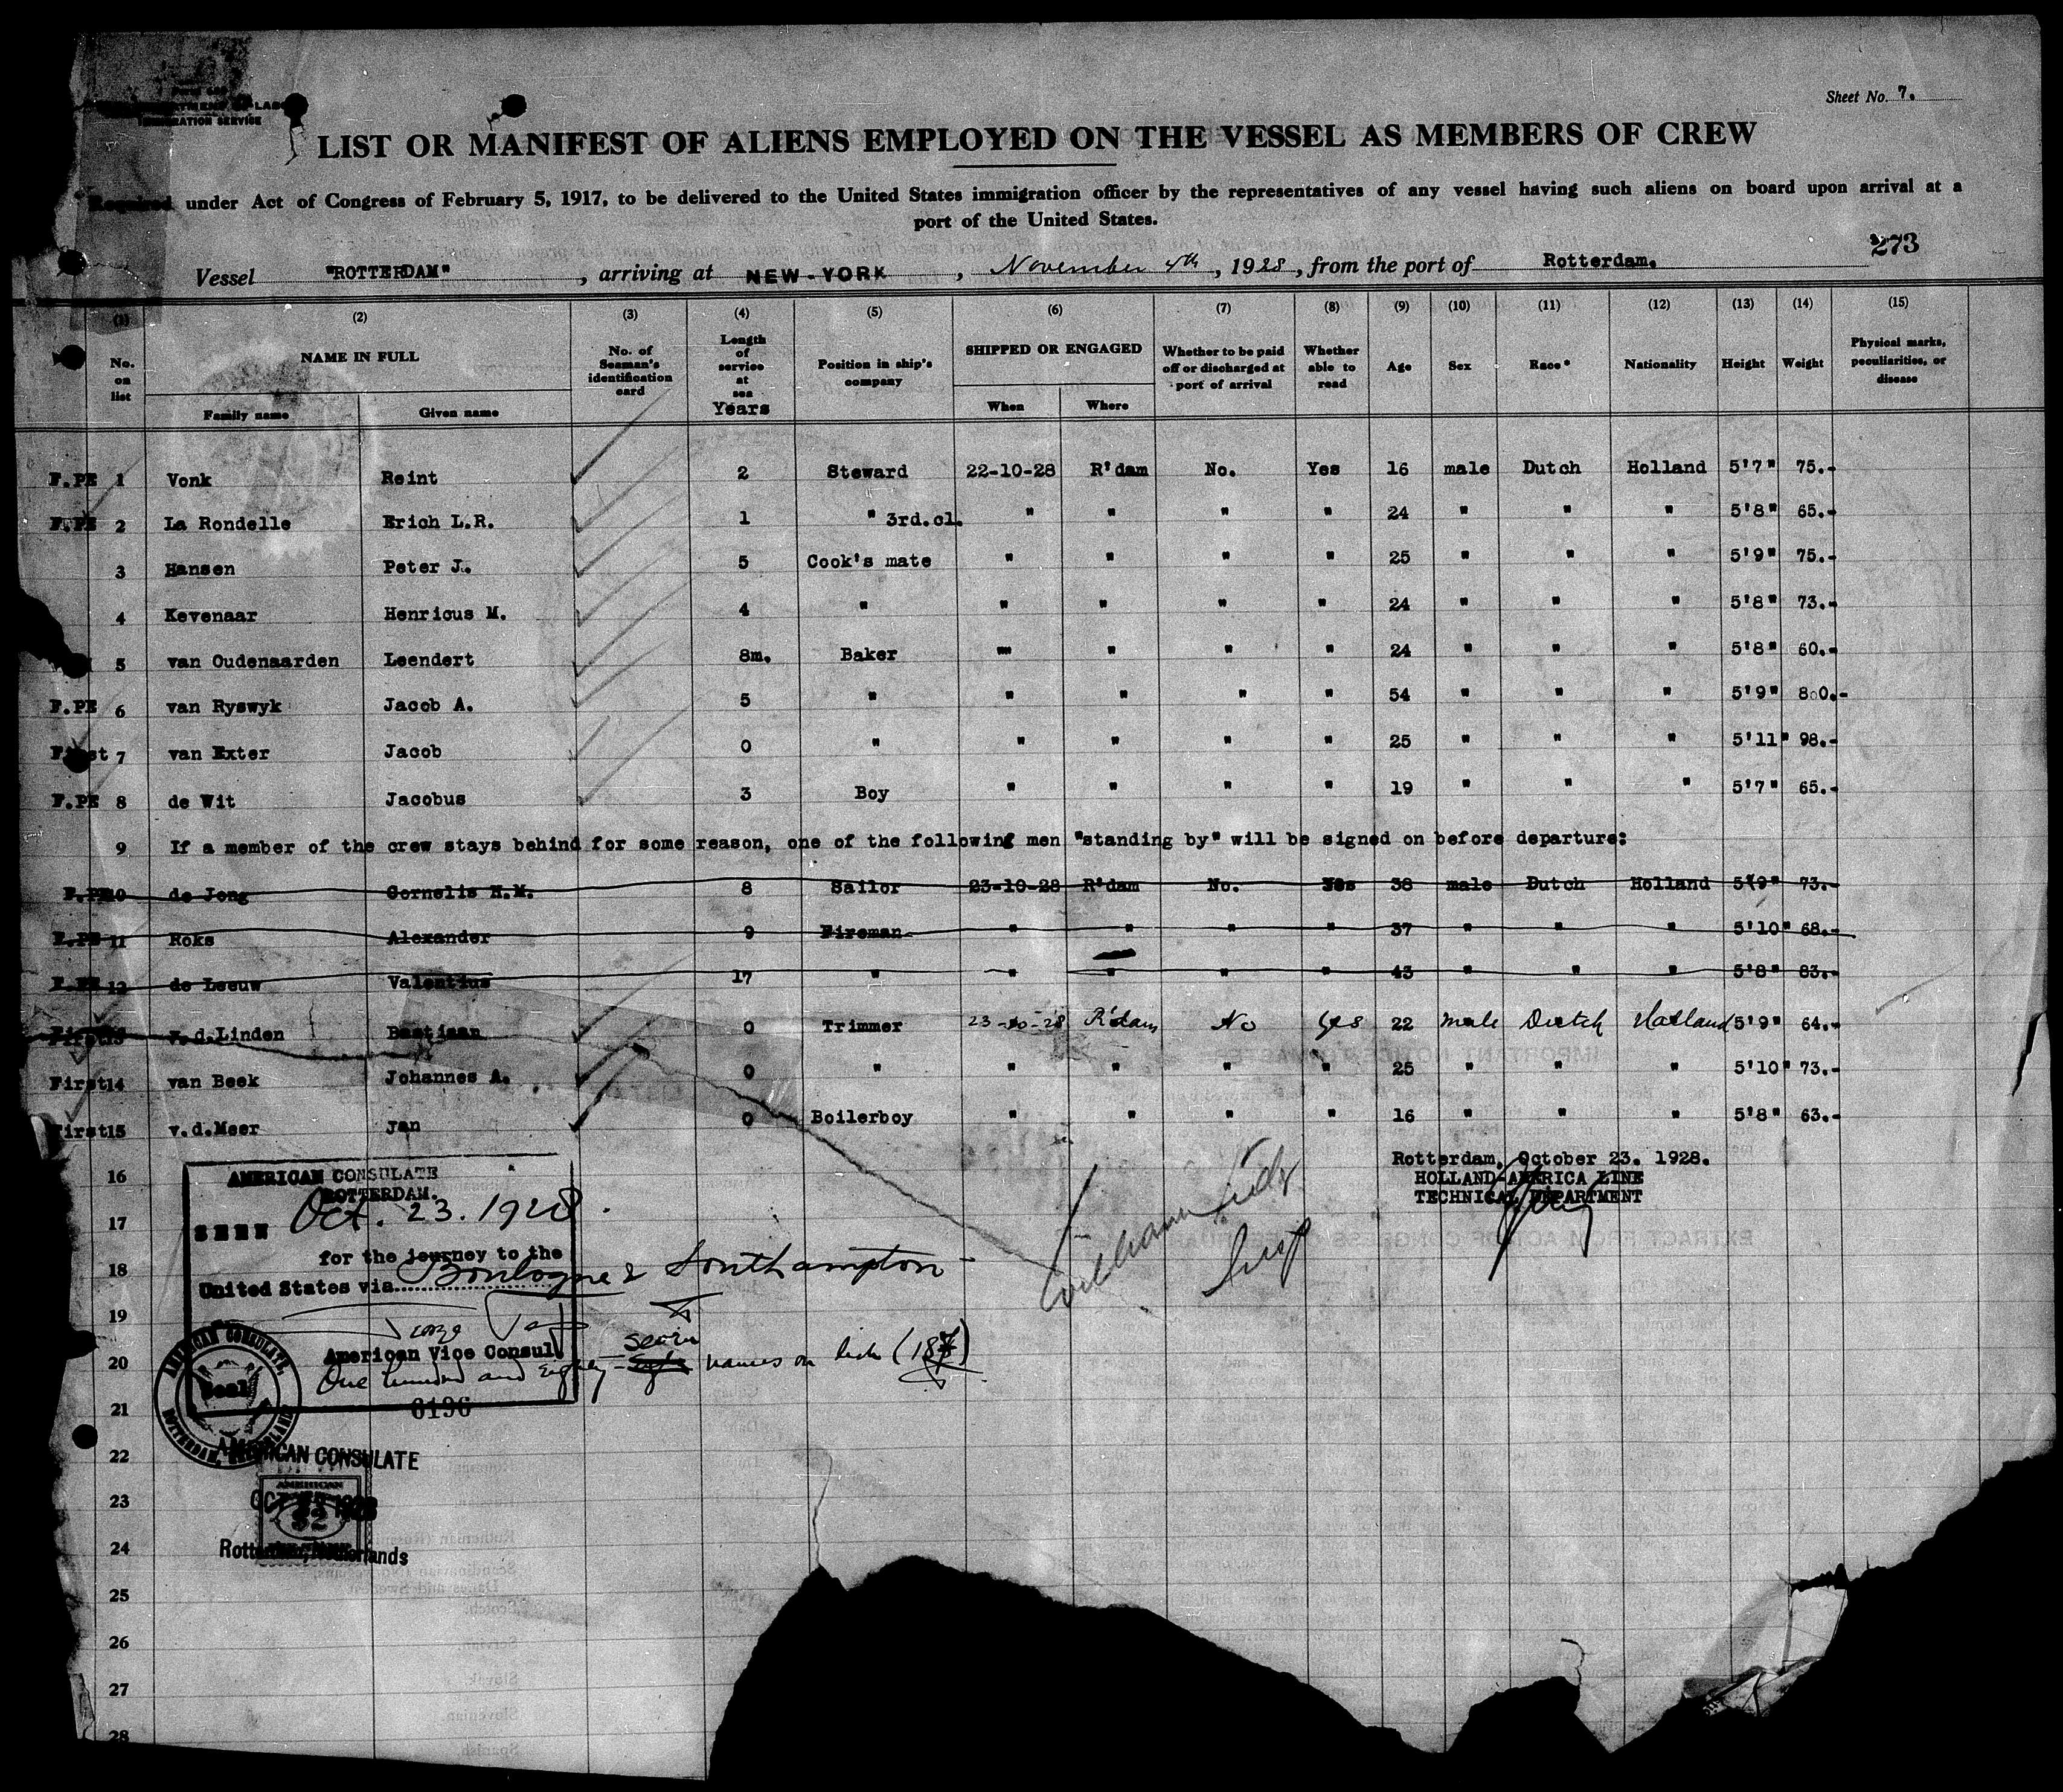 Sheet No. 7.
IMMIGRATION SERVICE
LIST OR MANIFEST OF ALIENS EMPLOYED ON THE VESSEL AS MEMBERS OF CREW
Required under Act of Congress of February 5, 1917, to be delivered to the United States immigration officer by the representatives of any vessel having such aliens on board upon arrival at a
port of the United States.
273
Vessel "ROTTERDAM", arriving at NEW-YORK, November 4th, 1928, from the port of Rotterdam.
(1) (2) (3) (4) (5) (6) (7) (8) (9) (10) (11) (12) (13) (14) (15)
No. on list NAME IN FULL Family name Given name No. of Seaman's identification card Length of service at sea Years Position in ship's company SHIPPED OR ENGAGED When Where Whether to be paid off or discharged at port of arrival Whether able to read Age Sex Race* Nationality Height Weight Physical marks, peculiarities, or disease
F.PE 1 Vonk Reint 2 Steward 22-10-28 R'dam No. Yes 16 male Dutch Holland 5'7" 75.-
F.PE 2 La Rondelle Erich L.R. 1 " 3rd.cl. " " " " 24 " " " 5'8" 65.-
3 Hansen Peter J. 5 Cook's mate " " " " 25 " " " 5'9" 75.-
4 Kevenaar Henricus M. 4 " " " " " 24 " " " 5'8" 73.-
5 van Oudenaarden Leendert 8m. Baker " " " " 24 " " " 5'8" 60.-
F.PE 6 van Ryswyk Jacob A. 5 " " " " " 54 " " " 5'9" 80.-
First 7 van Exter Jacob 0 " " " " " 25 " " " 5'11" 98.-
F.PE 8 de Wit Jacobus 3 Boy " " " " 19 " " " 5'7" 65.-
9 If a member of the crew stays behind for some reason, one of the following men "standing by" will be signed on before departure:
F.PE 10 de Jong Cornelis H.M. 8 Sailor 23-10-28 R'dam No. Yes 38 male Dutch Holland 5'9" 73.-
F.PE 11 Roks Alexander 9 Fireman " " " " 37 " " " 5'10" 68.-
F.PE 12 de Leeuw Valentius 17 " " " " " 43 " " " 5'8" 83.-
First 13 v.d.Linden Bastiaan 0 Trimmer 23-10-28 R'dam No Yes 22 male Dutch Holland 5'9" 64.-
First 14 van Beek Johannes A. 0 " " " " " 25 " " " 5'10" 73.-
First 15 v.d.Meer Jan 0 Boilerboy " " " " 16 " " " 5'8" 63.-
Rotterdam, October 23. 1928.
HOLLAND-AMERICA LINE
TECHNICAL DEPARTMENT
16
17
18
19
20
21
22
23
24
25
26
27
28
AMERICAN CONSULATE
ROTTERDAM.
SEEN Oct. 23. 1928.
for the journey to the
United States via Boulogne & Southampton
American Vice Consul
One hundred and eighty-seven names on list (187)
6196
AMERICAN CONSULATE, ROTTERDAM
Seal
AMERICAN CONSULATE
AMERICAN
1928
$2
Rotterdam, Netherlands